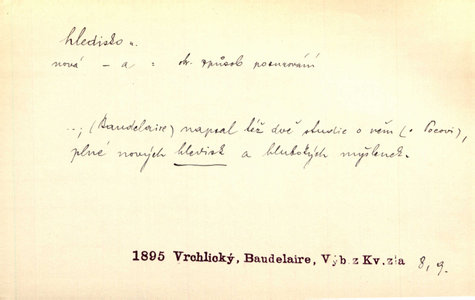 hledisko n.
nová - a : zvl. způsob poznávání
..., (Baudelaire) napsal též dvě studie o něm (o Poeovi),
plné nových hledisk a hlubokých myšlenek.
1895 Vrchlický, Baudelaire, Výb. z Kv. zla 8, 9.